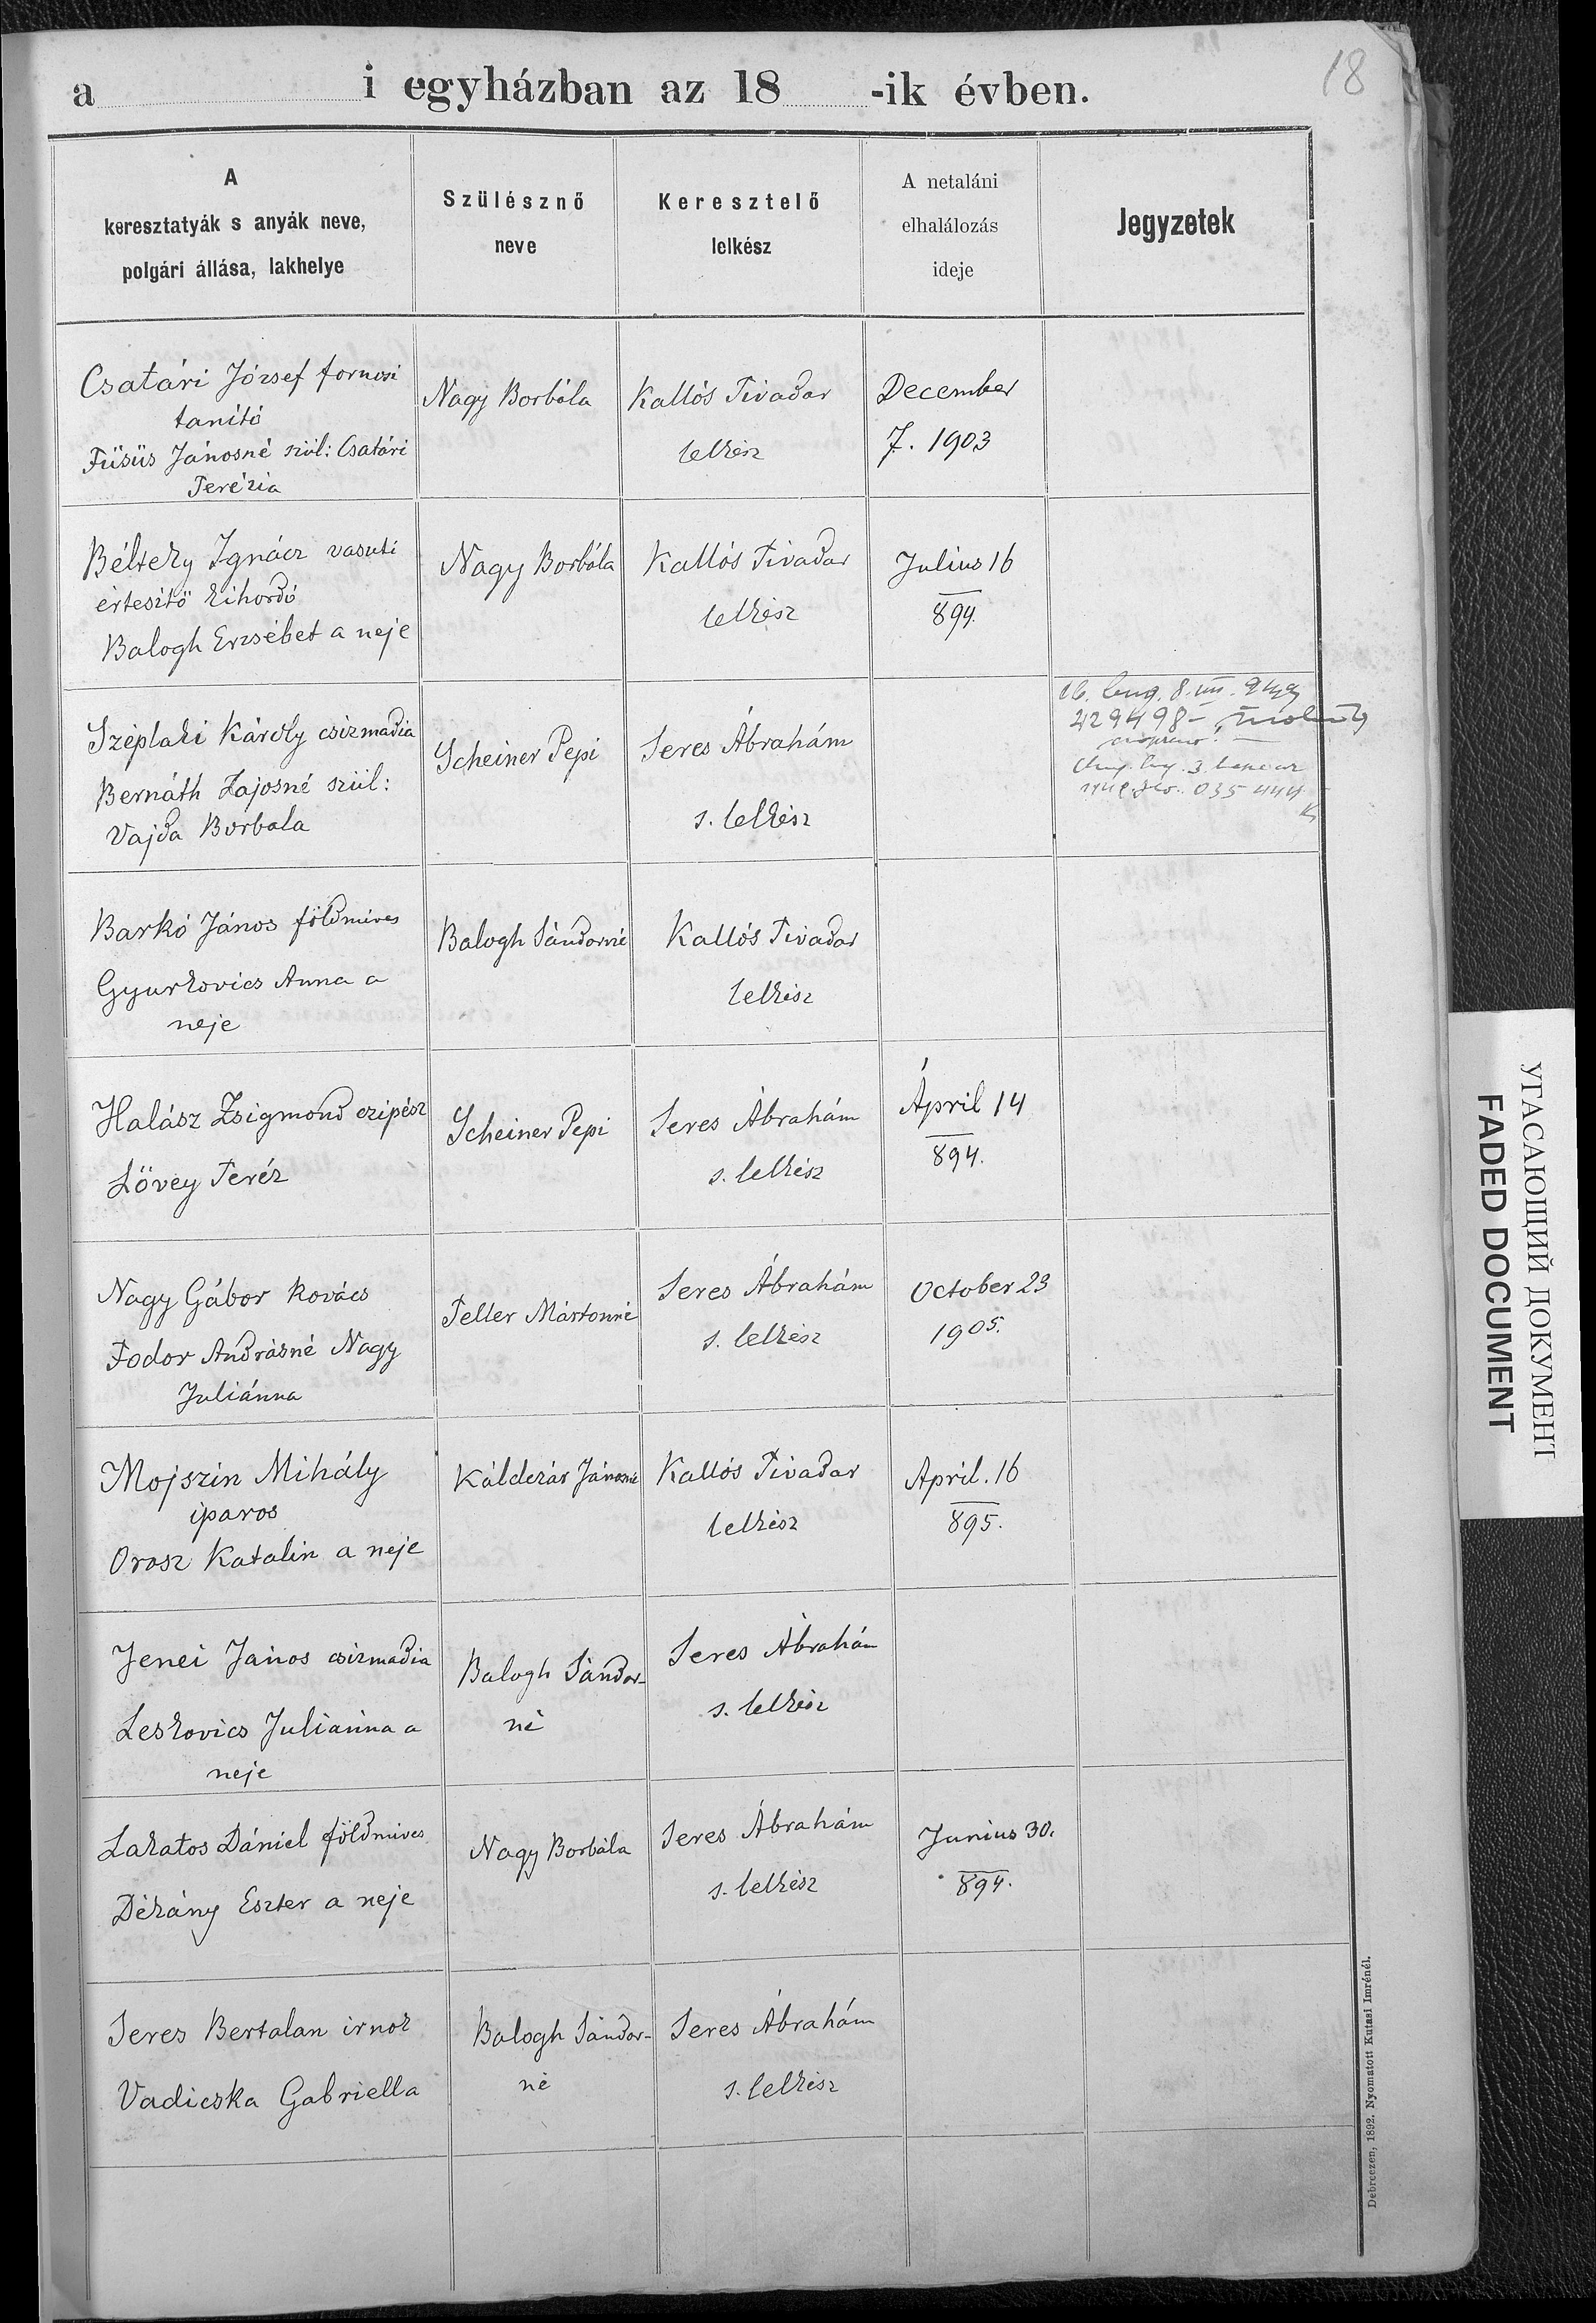 18
a i egyházban az 18 -ik évben.
A
keresztatyák s anyák neve,
polgári állása, lakhelye
Szülésznő
neve
Keresztelő
lelkész
A netaláni
elhalálozás
ideje
Jegyzetek
Csatári József fornosi
tanító
Füsüs Jánosné szül: Csatári
Terézia
Nagy Borbála
Kallós Tivadar
lelkész
December
7. 1903
Bélteky Ignácz vasuti
értesitő kihordó
Balogh Erzsébet a neje
Nagy Borbála
Kallós Tivadar
lelkész
Julius 16
894.
Széplaki Károly csizmadia
Bernáth Lajosné szül:
Vajda Borbala
Scheiner Pepi
Seres Ábrahám
s. lelkész
429498-
035 444
Barkó János földmives
Gyurkovics Anna a
neje
Balogh Sándorné
Kallós Tivadar
lelkész
Halász Zsigmond czipész
Lövey Teréz
Scheiner Pepi
Seres Ábrahám
s. lelkész
Április 14
894.
Nagy Gábor kovács
Fodor Andrásné Nagy
Juliánna
Teller Mártonné
Seres Ábrahám
s. lelkész
October 23
1905.
Mojszin Mihály
iparos
Orosz Katalin a neje
Jánosné
Kallós Tivadar
lelkész
April. 16
895.
Jenei János csizmadia
Leskovics Julianna a
neje
Balogh Sándor-
né
Seres Ábrahám
s. lelkész
Lakatos Dániel földmives
Dékány Eszter a neje
Nagy Borbála
Seres Ábrahám
s. lelkész
Junius 30.
894.
Seres Bertalan irnok
Vadicska Gabriella
Balogh Sándor-
né
Seres Ábrahám
s. lelkész
Debreczen, 1892. Nyomatott Kutasi Imrénél.
УГАСАЮЩИЙ ДОКУМЕНТ
FADED DOCUMENT